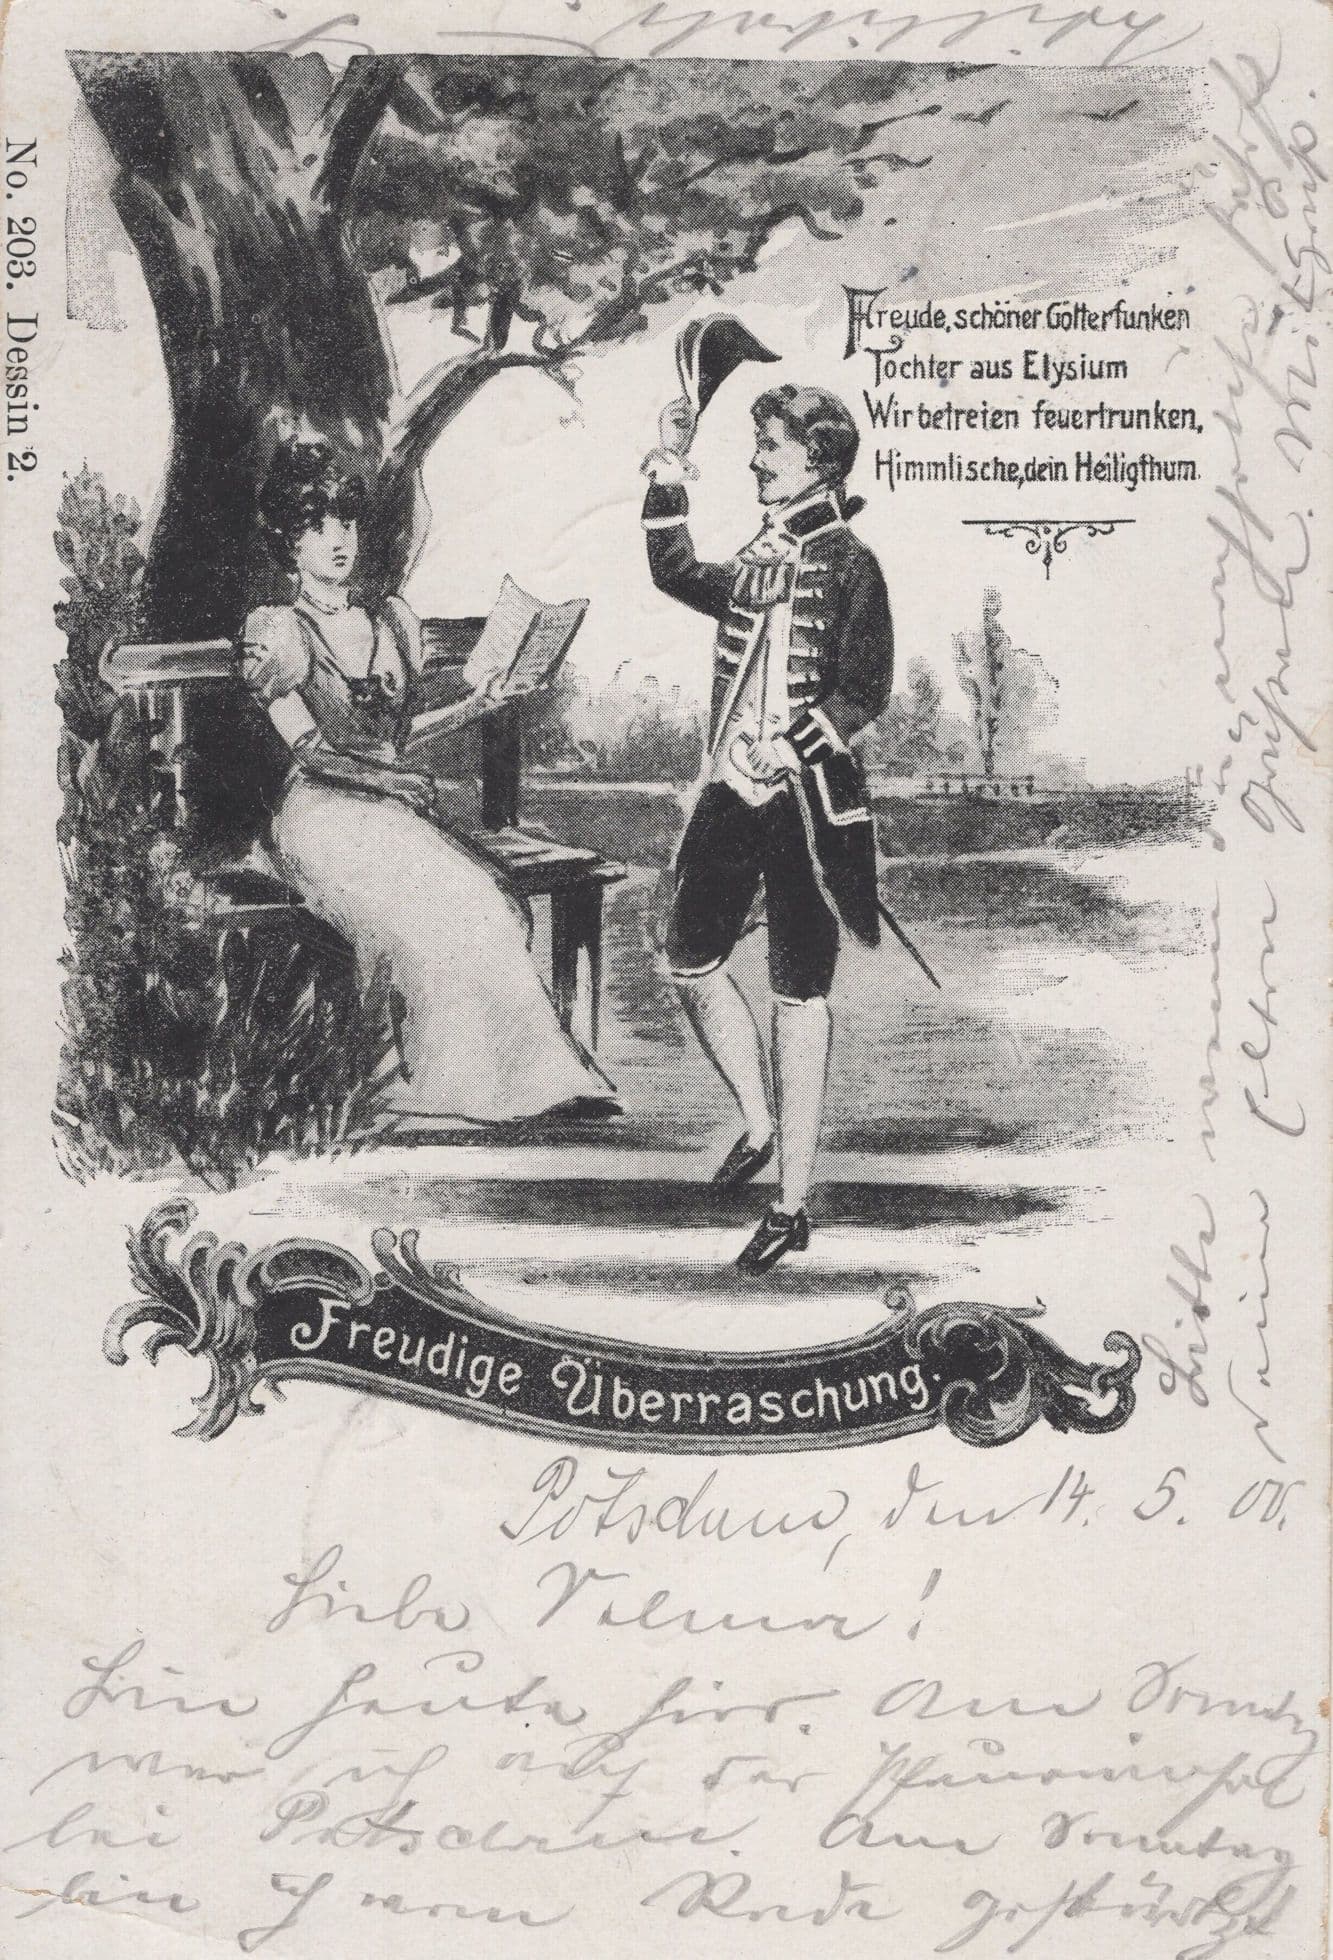 No. 203. Dessin 2.
Freude, schöner Götterfunken
Tochter aus Elysium
Wir betreten feuertrunken,
Himmlische, dein Heiligthum.
Freudige Überraschung.
Potsdam, den 14. 5. 00.
Liebe !
Bin heute hier. Am Sonntg
war ich auf der Pfaueninsel
bei Potsdam. Am Sonntag
bin ich vom Rade gestürtzt
Bitte wenn
Deine Eltern Grüßend.